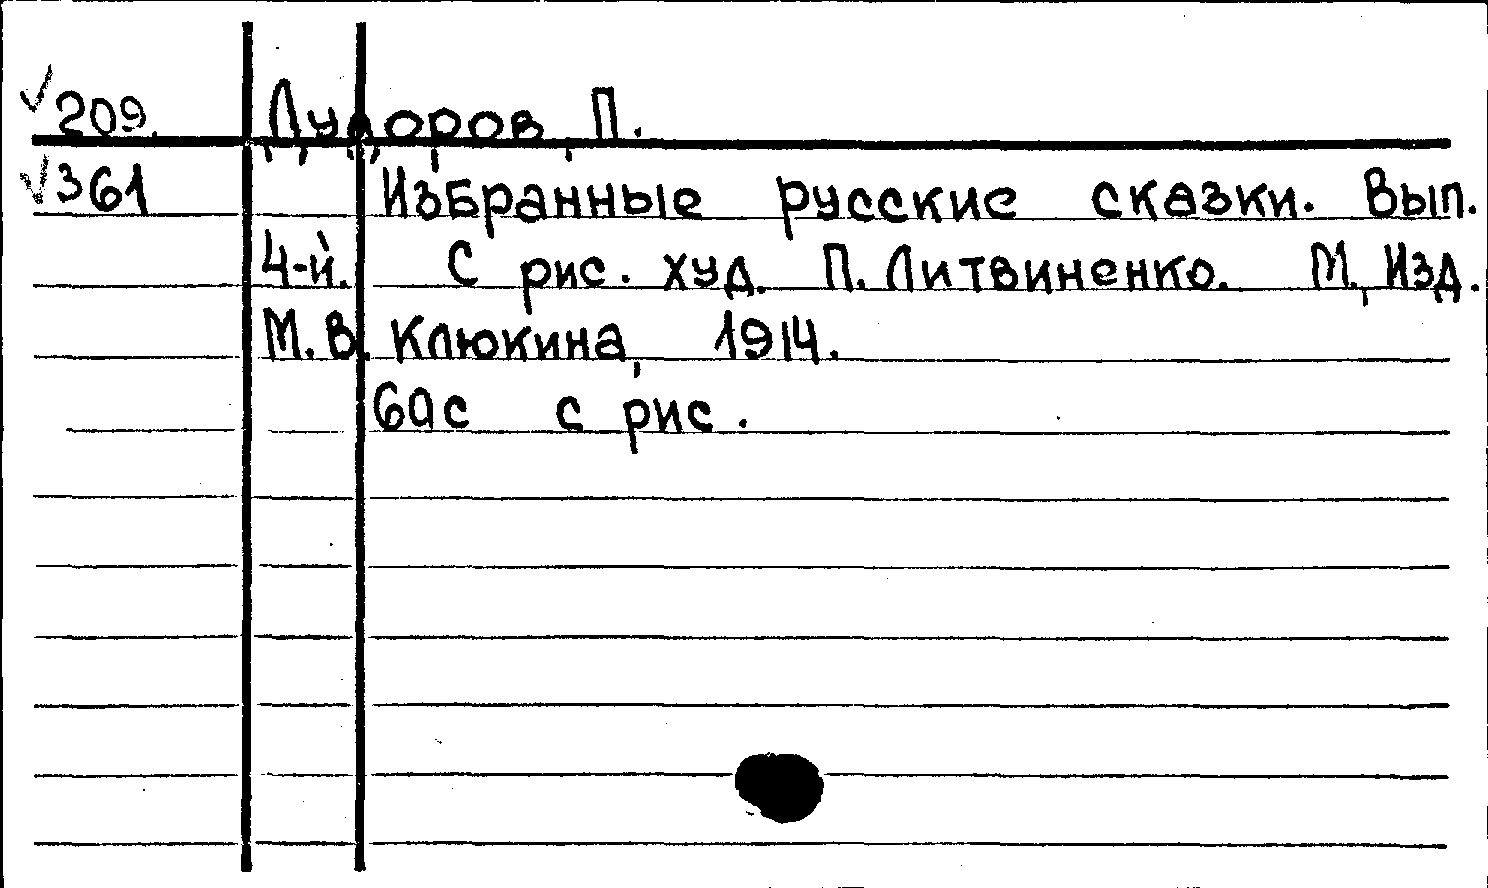 √ 209. Дудоров, П.
√ 361 Избранные русские сказки. Вып.
4-й. С рис. худ. П. Литвиненко. М., Изд.
М.В. Клюкина, 1914.
60с с рис.